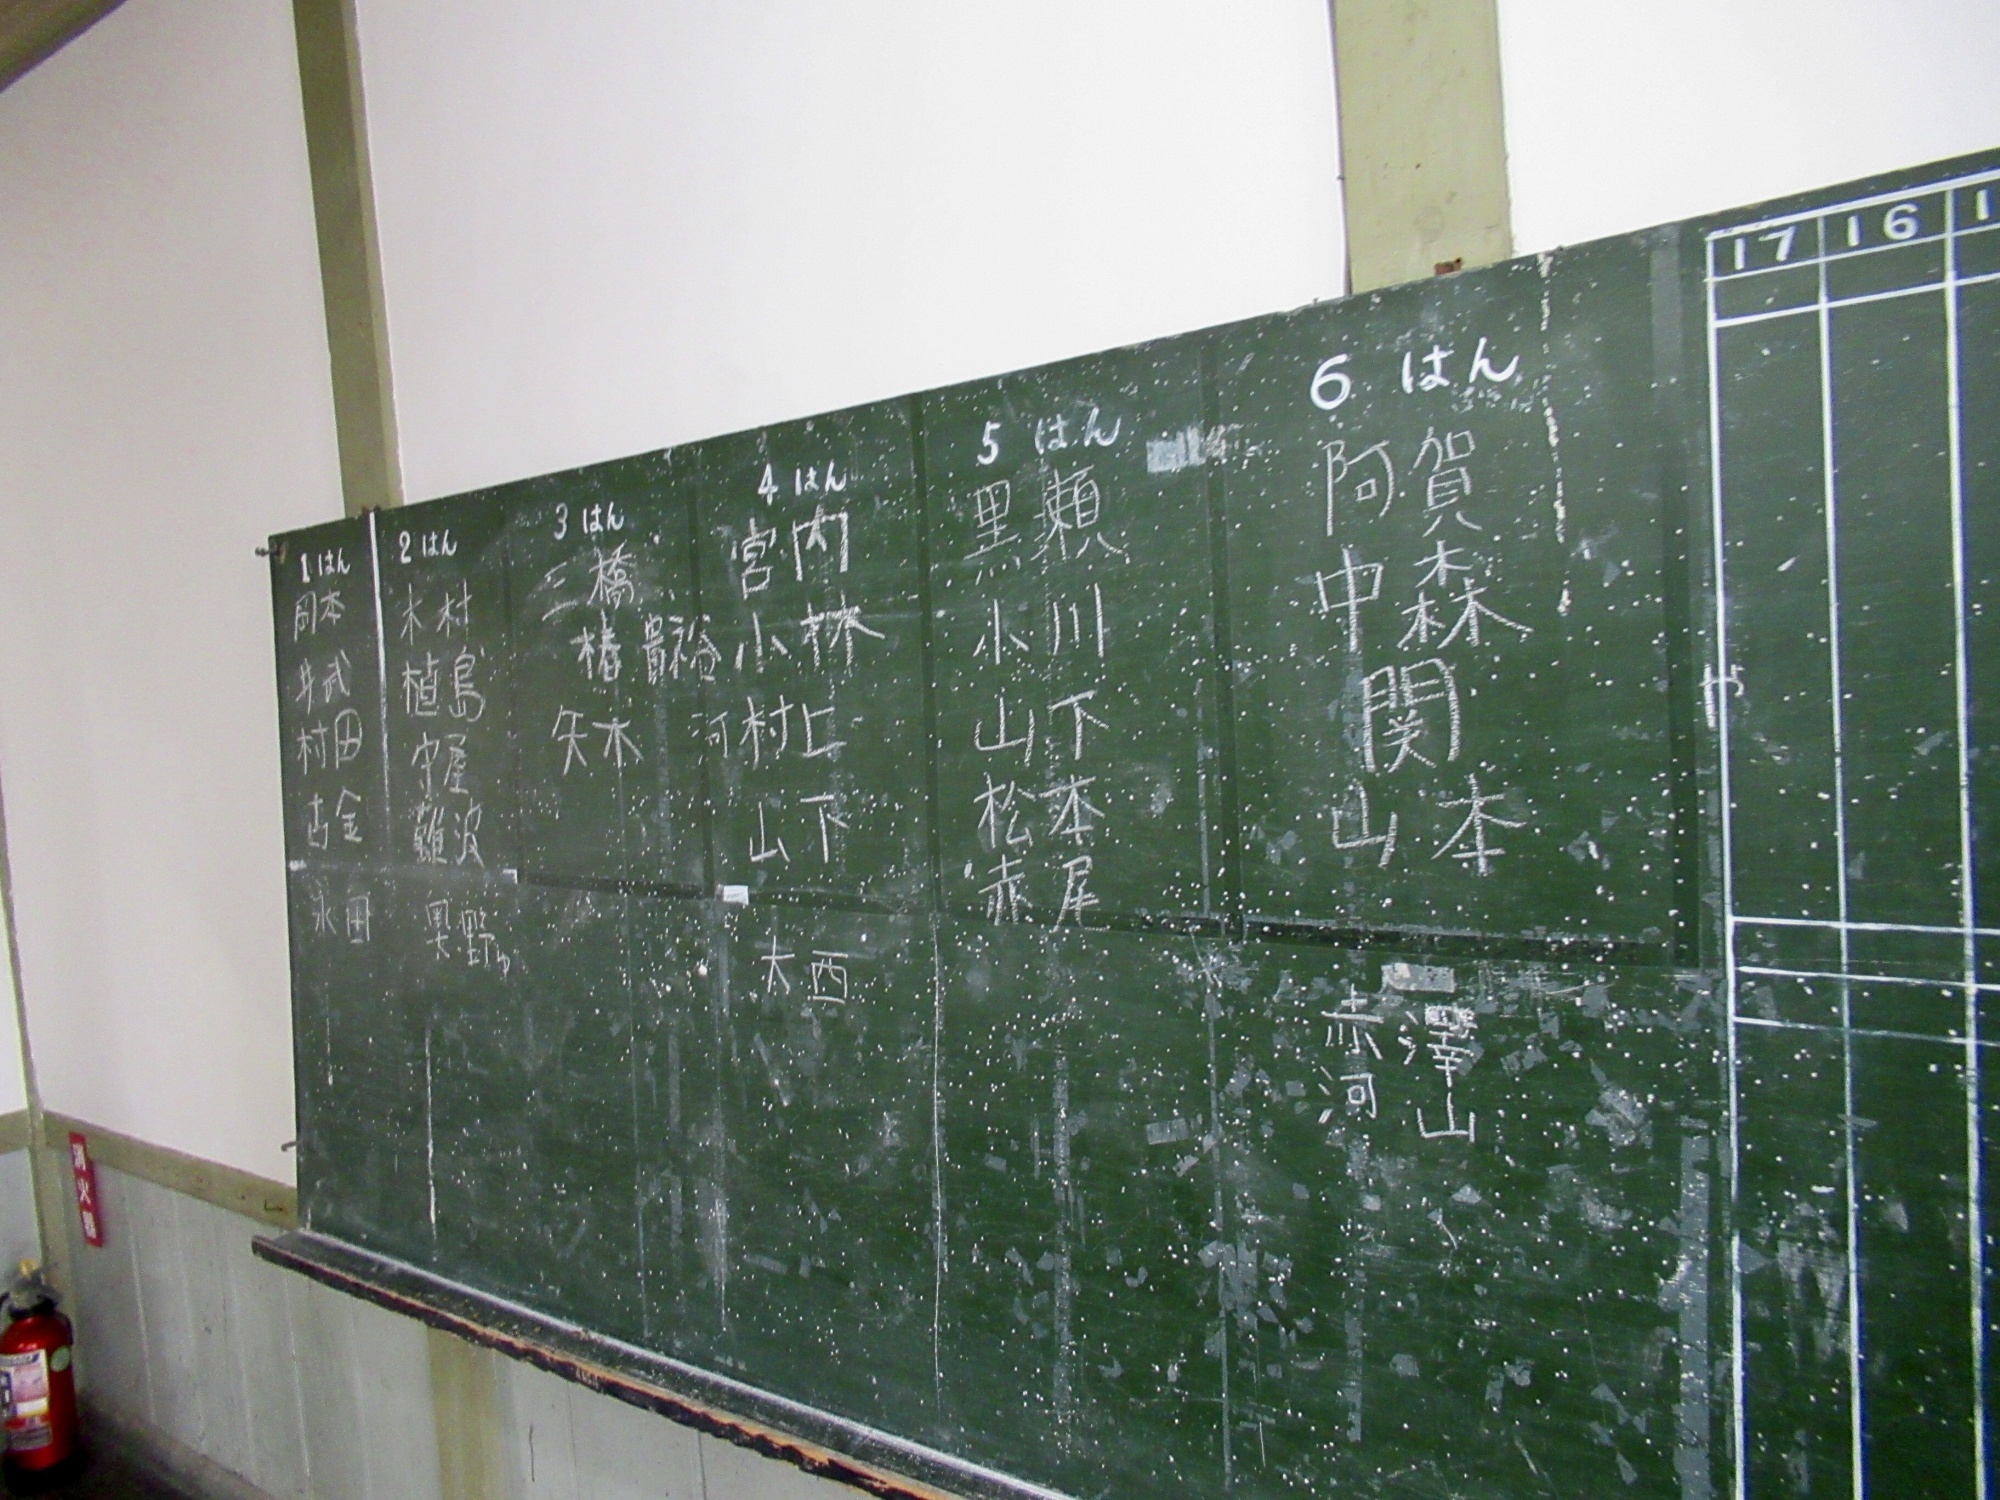 1 はん
岡本
村田
古金
永田
2 はん
木村
植島
守屋
難波
奥野
3 はん
三橋
椿 貴裕
矢木
4 はん
宮内
小林
河村上
山下
大西
5 はん
黒瀬
小川
山下
松本
赤尾
6 はん
阿賀
中森
関
山本
赤澤
河山
17 16 1
消火器